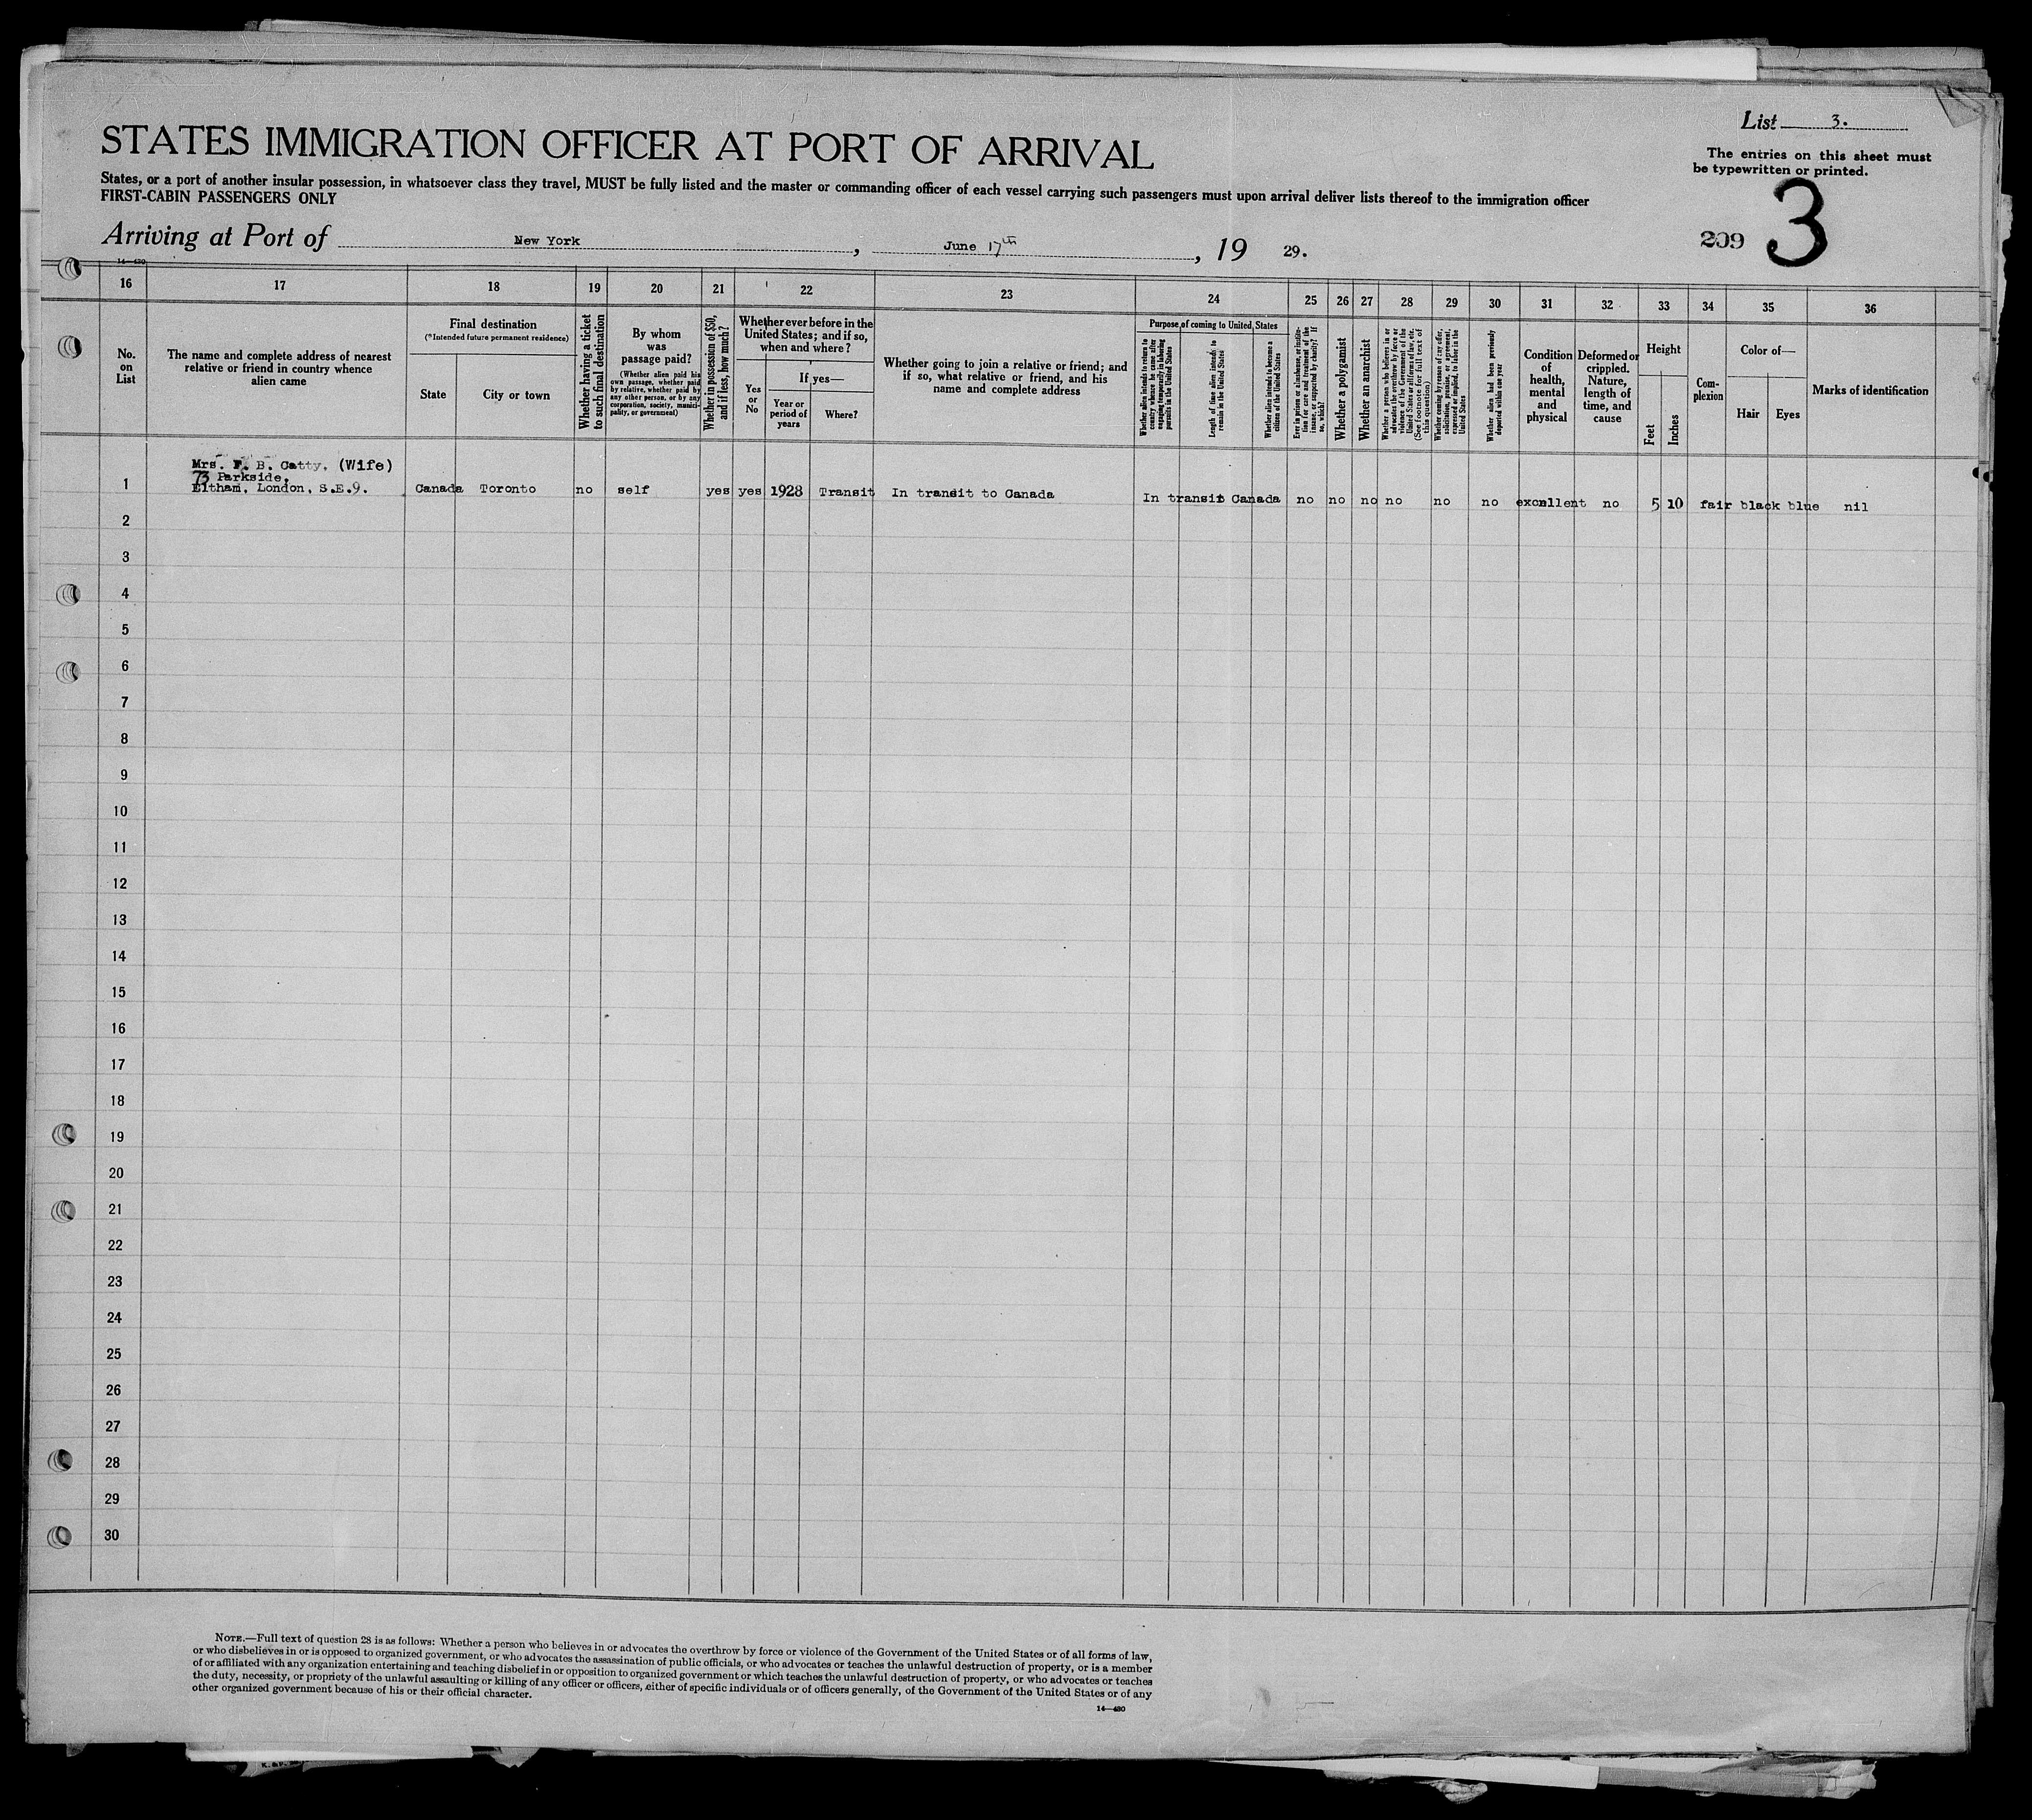 List 3.
STATES IMMIGRATION OFFICER AT PORT OF ARRIVAL
The entries on this sheet must
be typewritten or printed.
States, or a port of another insular possession, in whatsoever class they travel, MUST be fully listed and the master or commanding officer of each vessel carrying such passengers must upon arrival deliver lists thereof to the immigration officer
FIRST-CABIN PASSENGERS ONLY
209 3
Arriving at Port of New York, June 17th, 19 29.
14—430
16 17 18 19 20 21 22 23 24 25 26 27 28 29 30 31 32 33 34 35 36
No.
on
List
The name and complete address of nearest
relative or friend in country whence
alien came
Final destination
(*Intended future permanent residence)
State
City or town
Whether having a ticket
to such final destination
By whom
was
passage paid?
(Whether alien paid his
own passage, whether paid
by relative, whether paid by
any other person, or by any
corporation, society, munici-
pality, or government)
Whether in possession of $50,
and if less, how much?
Whether ever before in the
United States; and if so,
when and where?
Yes
or
No
If yes—
Year or
period of
years
Where?
Whether going to join a relative or friend; and
if so, what relative or friend, and his
name and complete address
Purpose of coming to United States
Whether alien intends to return to
country whence he came after
engaging temporarily in laboring
pursuits in the United States
Length of time alien intends to
remain in the United States
Whether alien intends to become a
citizen of the United States
Ever in prison or almshouse, or institu-
tion for care and treatment of the
insane, or supported by charity? If
so, which?
Whether a polygamist
Whether an anarchist
Whether a person who believes in or
advocates the overthrow by force or
violence of the Government of the
United States or all forms of law, etc.
(See footnote for full text of
this question)
Whether coming by reason of any offer,
solicitation, promise, or agreement,
expressed or implied, to labor in the
United States
Whether alien had been previously
deported within one year
Condition
of
health,
mental
and
physical
Deformed or
crippled.
Nature,
length of
time, and
cause
Height
Feet
Inches
Com-
plexion
Color of—
Hair
Eyes
Marks of identification
Mrs. F. B. Catty. (Wife)
73 Parkside,
Eltham, London, S.E.9.
1 Canada Toronto no self yes yes 1928 Transit In transit to Canada In transit Canada no no no no no no excellent no 5 10 fair black blue nil
2
3
4
5
6
7
8
9
10
11
12
13
14
15
16
17
18
19
20
21
22
23
24
25
26
27
28
29
30
NOTE.—Full text of question 28 is as follows: Whether a person who believes in or advocates the overthrow by force or violence of the Government of the United States or of all forms of law,
or who disbelieves in or is opposed to organized government, or who advocates the assassination of public officials, or who advocates or teaches the unlawful destruction of property, or is a member
of or affiliated with any organization entertaining and teaching disbelief in or opposition to organized government or which teaches the unlawful destruction of property, or who advocates or teaches
the duty, necessity, or propriety of the unlawful assaulting or killing of any officer or officers, either of specific individuals or of officers generally, of the Government of the United States or of any
other organized government because of his or their official character.
14—430